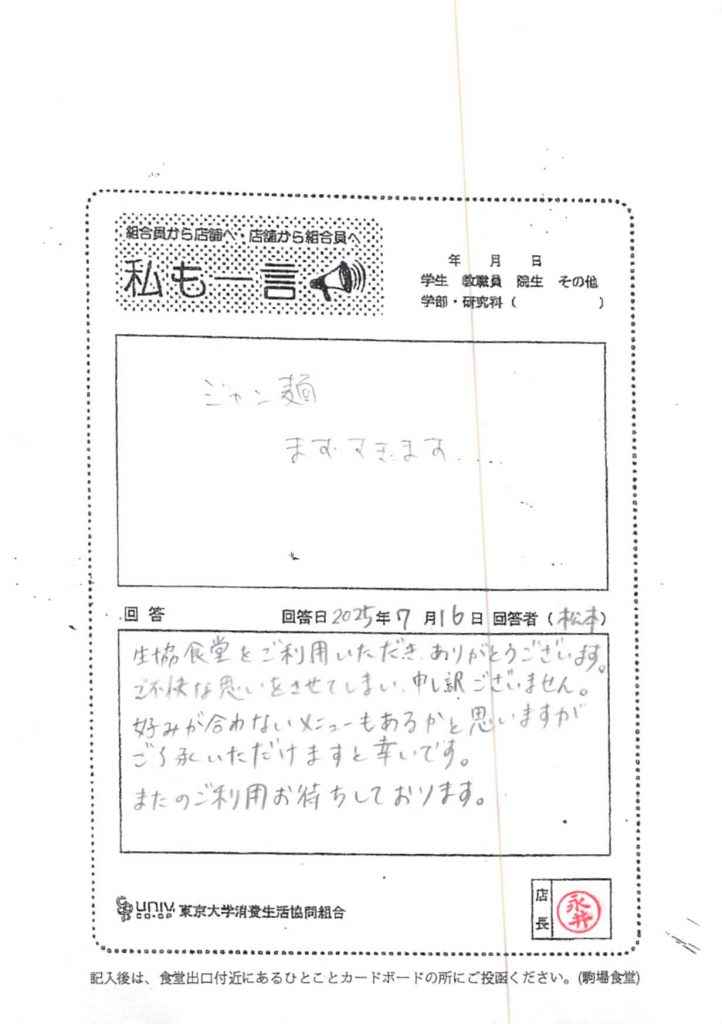 組合員から店舗へ・店舗から組合員へ
私も一言
年 月 日
学生 教職員 院生 その他
学部・研究科( )
ジャン麺
まずすぎます....
回答 回答日2025年7月16日 回答者(松本)
生協食堂をご利用いただき、ありがとうございます。
ご不快な思いをさせてしまい、申し訳ございません。
好みが合わないメニューもあるかと思いますが
ご了承いただけますと幸いです。
またのご利用お待ちしております。
UNIV.
CO-OP
東京大学消費生活協同組合
店長
永井
記入後は、食堂出口付近にあるひとことカードボードの所にご投函ください。(駒場食堂)